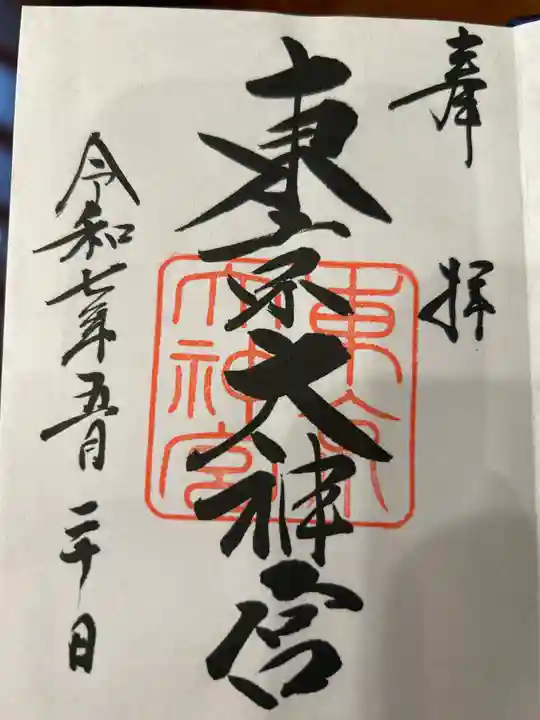 奉拝
東京大神宮
東京
大神宮
令和七年五月二十日